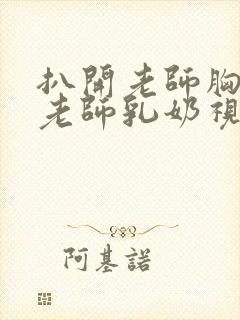 扒開老師胸
老師乳奶視
阿基諾